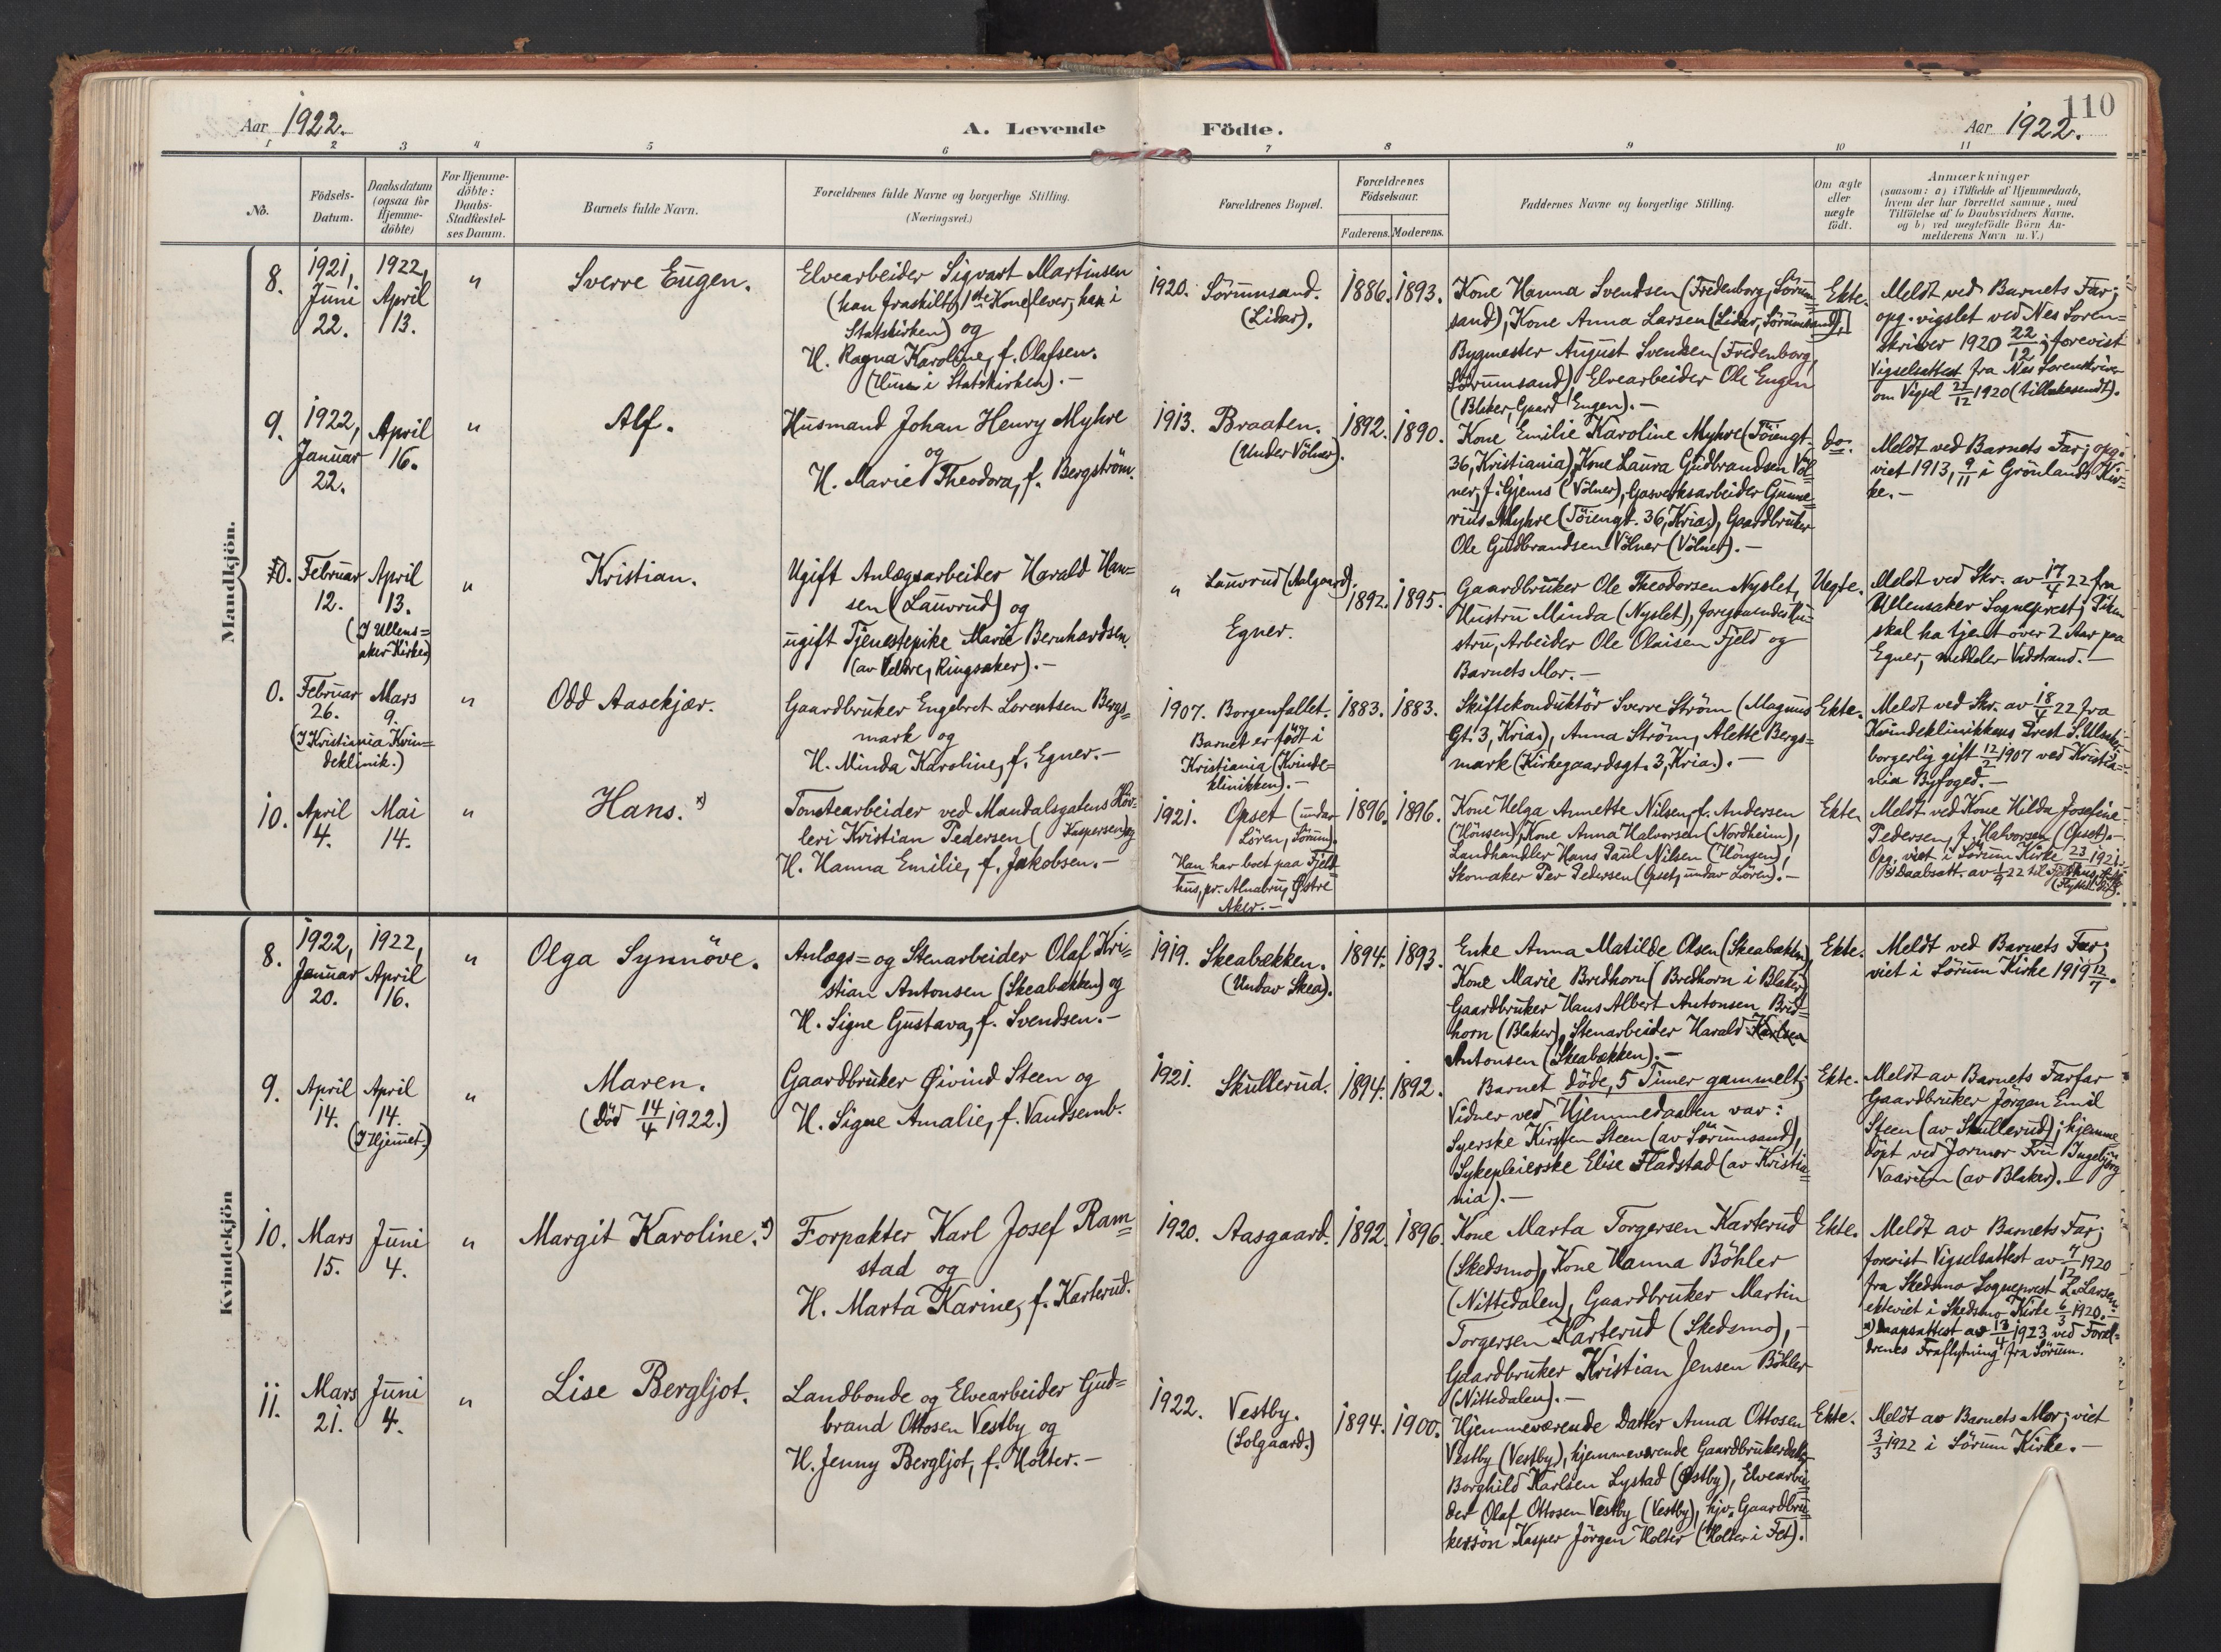 110
Aar 1922.
A. Levende Födte.
Aar 1922.
1 2 3 4 5 6 7 8 9 10 11
No.
Födsels-
Datum.
Daabsdatum
(ogsaa for
Hjemme-
döbte)
For Hjemme-
döbte:
Daabs-
Stadfæstel-
ses Datum.
Barnets fulde Navn.
Forældrenes fulde Navne og borgerlige Stilling.
(Næringsvei.)
Forældrenes Bopæl.
Forældrenes
Födselsaar.
Faderens. Moderens.
Faddernes Navne og borgerlige Stilling.
Om ægte
eller
uægte
födt.
Anmærkninger
(saasom: a) i Tilfælde af Hjemmedaab,
hvem der har forrettet samme, med
Tilföielse af to Daabsvidners Navne,
og b) ved uægtefödte Börn An-
melderens Navn m. V.)
Mandkjön.
8.
1921,
Juni
22.
1922,
April
13.
"
Sverre Eugen.
Elvearbeider Sigvart Martinsen
(han fraskilt, 1ste Kone lever, han i
Statskirken) og
H. Ragna Karoline, f. Olafsen.
(Hun i Statskirken). -
1920. Sörumsand.
(Lidar).
1886. 1893.
Kone Hanna Svendsen (Fredenborg, Sörum=
sand), Kone Anna Larsen (Lidar, Sörumsand),
Bygmester August Svendsen (Fredenborg,
Sörumsand), Elvearbeider Ole Engen
(Blaker, Gaard Engen). -
Ekte.
Meldt ved Barnets Far;
opg. vigslet ved Nes Soren=
skriver 1920 22/12; forevist
Vigselsattest fra Nes Sorenskriver
om Vigsel 22/12 1920 (tilbakesendt).
9.
1922,
Januar
22.
April
16.
"
Alf.
Husmand Johan Henry Myhre
og
H. Marie Theodora, f. Bergström.
1913. Braaten.
(Under Völner).
1892. 1890.
Kone Emilie Karoline Myhre (Töiengt.
36, Kristiania), Kone Laura Gudbrandsen Völ=
ner, f. Gjems (Völner), Gasverksarbeider Gunne=
rius Myhre (Töiengt. 36, Kria.), Gaardbruker
Ole Gudbrandsen Völner (Völner). -
do.
Meldt ved Barnets Far; opg.
viet 1913, 9/11 i Grönlands Kir=
ke. -
0.
Februar
12.
April
13.
(I Ullens=
aker Kirke)
"
Kristian.
Ugift Anlægsarbeider Harald Han=
sen (Lauvrud) og
ugift Tjenestepike Marie Bernhardsen.
(av Veldre, Ringsaker). -
" Lauvrud (Aalgaard).
Egner.
1892. 1895.
Gaardbruker Ole Theodorsen Nyslet,
Hustru Minda (Nyslet), foregaaendes Hu=
stru, Arbeider Ole Olaisen Fjeld og
Barnets Mor. -
Uegte.
Meldt ved Skr. av 17/4 22 fra
Ullensaker Sogneprest; Piken
skal ha tjent over 2 Aar paa
Egner, meddeler Vadstrand. -
0.
Februar
26.
Mars
9.
(I Kristiania Kvin=
deklinik.)
"
Odd Aasekjær.
Gaardbruker Engebret Lorentsen Bergs=
mark og
H. Minda Karoline, f. Egner. -
1907. Borgenfallet.
Barnet er födt i
Kristiania (Kvinde=
klinikken). -
1883. 1883.
Skiftekonduktör Sverre Ström (Magnus
Gt. 3, Kria.), Anna Ström, Alette Bergs=
mark (Kirkegaardsgt. 3, Kria.). -
Ekte.
Meldt ved Skr. av 18/4 22 fra
Kvindeklinikkens Prest
borgerlig gift 12/2 1907 ved Kristia=
nia Byfoged. -
10.
April
4.
Mai
14.
"
Hans. x)
Tomtearbeider ved Mandalsgatens Höv=
leri Kristian Pedersen (Kaspersen) og
H. Hanna Emilie, f. Jakobsen. -
1921. Opset (under
Lören, Sörum).
Han har boet paa Fjeld=
hus, pr. Alnabru, Østre
Aker. -
1896. 1896.
Kone Helga Annette Nilsen, f. Andersen
(Hönsen), Kone Anna Halvorsen (Nordheim),
Landhandler Hans Paul Nilsen (Hönsen),
Skomaker Per Pedersen (Opset, under Lören). -
Ekte.
Meldt ved Kone Hilda Josefine
Pedersen, f. Halvorsen (Opset). -
Opg. viet i Sörum Kirke 23/ 1921.
x) Daabsatt. av 22 til
Kvindekjön
8.
1922,
Januar
20.
1922,
April
16.
"
Olga Synnöve.
Anlægs= og Stenarbeider Olaf Kri=
stian Antonsen (Skeabækken) og
H. Signe Gustava, f. Svendsen. -
1919. Skeabekken.
(Under Skea).
1894. 1893.
Enke Anna Matilde Olsen (Skeabækken),
Kone Marie Bredhorn (Bredhorn i Blaker),
Gaardbruker Hans Albert Antonsen Bred=
horn (Blaker), Stenarbeider Harald
Antonsen (Skeabækken). -
Ekte.
Meldt ved Barnets Far;
viet i Sörum Kirke 1919 12/7.
9.
April
14.
April
14.
(I Hjemmet.)
"
Maren.
(Död 14/4 1922.)
Gaardbruker Øivind Steen og
H. Signe Amalie, f. Vandsemb.
1921. Skullerud.
1894. 1892.
Barnet döde, 5 Timer gammelt;
Vidner ved Hjemmedaaben var:
Syerske Kirsten Steen (av Sörumsand),
Sykepleierske Elise Fladstad (av Kristia=
nia). -
Ekte.
Meldt av Barnets Farfar
Gaardbruker Jörgen Emil
Steen (av Skullerud); hjemme=
döpt ved Jormor Fru Ingebjörg
Vaarum (av Blaker). -
10.
Mars
15.
Juni
4.
"
Margit Karoline. x)
Forpakter Karl Josef Ram=
stad og
H. Marta Karine, f. Karterud.
1920. Aasgaard.
1892. 1896.
Kone Marta Torgersen Karterud
(Skedsmo), Kone Hanna Böhler
(Nittedalen), Gaardbruker Martin
Torgersen Karterud (Skedsmo), -
Gaardbruker Kristian Jensen Böhler
(Nittedalen). -
Ekte.
Meldt av Barnets Far;
forevist Vigselsattest av 7/12 1920
fra Skedsmo Sogneprest L. Larsen;
ekteviet i Skedsmo Kirke 6/3 1920. -
x) Daapsattest av 13/4 1923 ved Foræl=
drenes Fraflytning fra Sörum.
11.
Mars
21.
Juni
4.
"
Lise Bergljot.
Landbonde og Elvearbeider Gud=
brand Ottosen Vestby og
H. Jenny Bergljot, f. Holter. -
1922. Vestby.
(Solgaard.)
1894. 1900.
Hjemmeværende Datter Anna Ottosen
Vestby (Vestby), hjemmeværende Gaardbrukerdatter
Borghild Karlsen Lystad (Østby), Elvearbei=
der Olaf Ottosen Vestby (Vestby), hjv. Gaardbru=
kersön Kasper Jörgen Holter (Holter i Fet).
Ekte.
Meldt av Barnets Mor; viet
3/3 1922 i Sörum Kirke. -